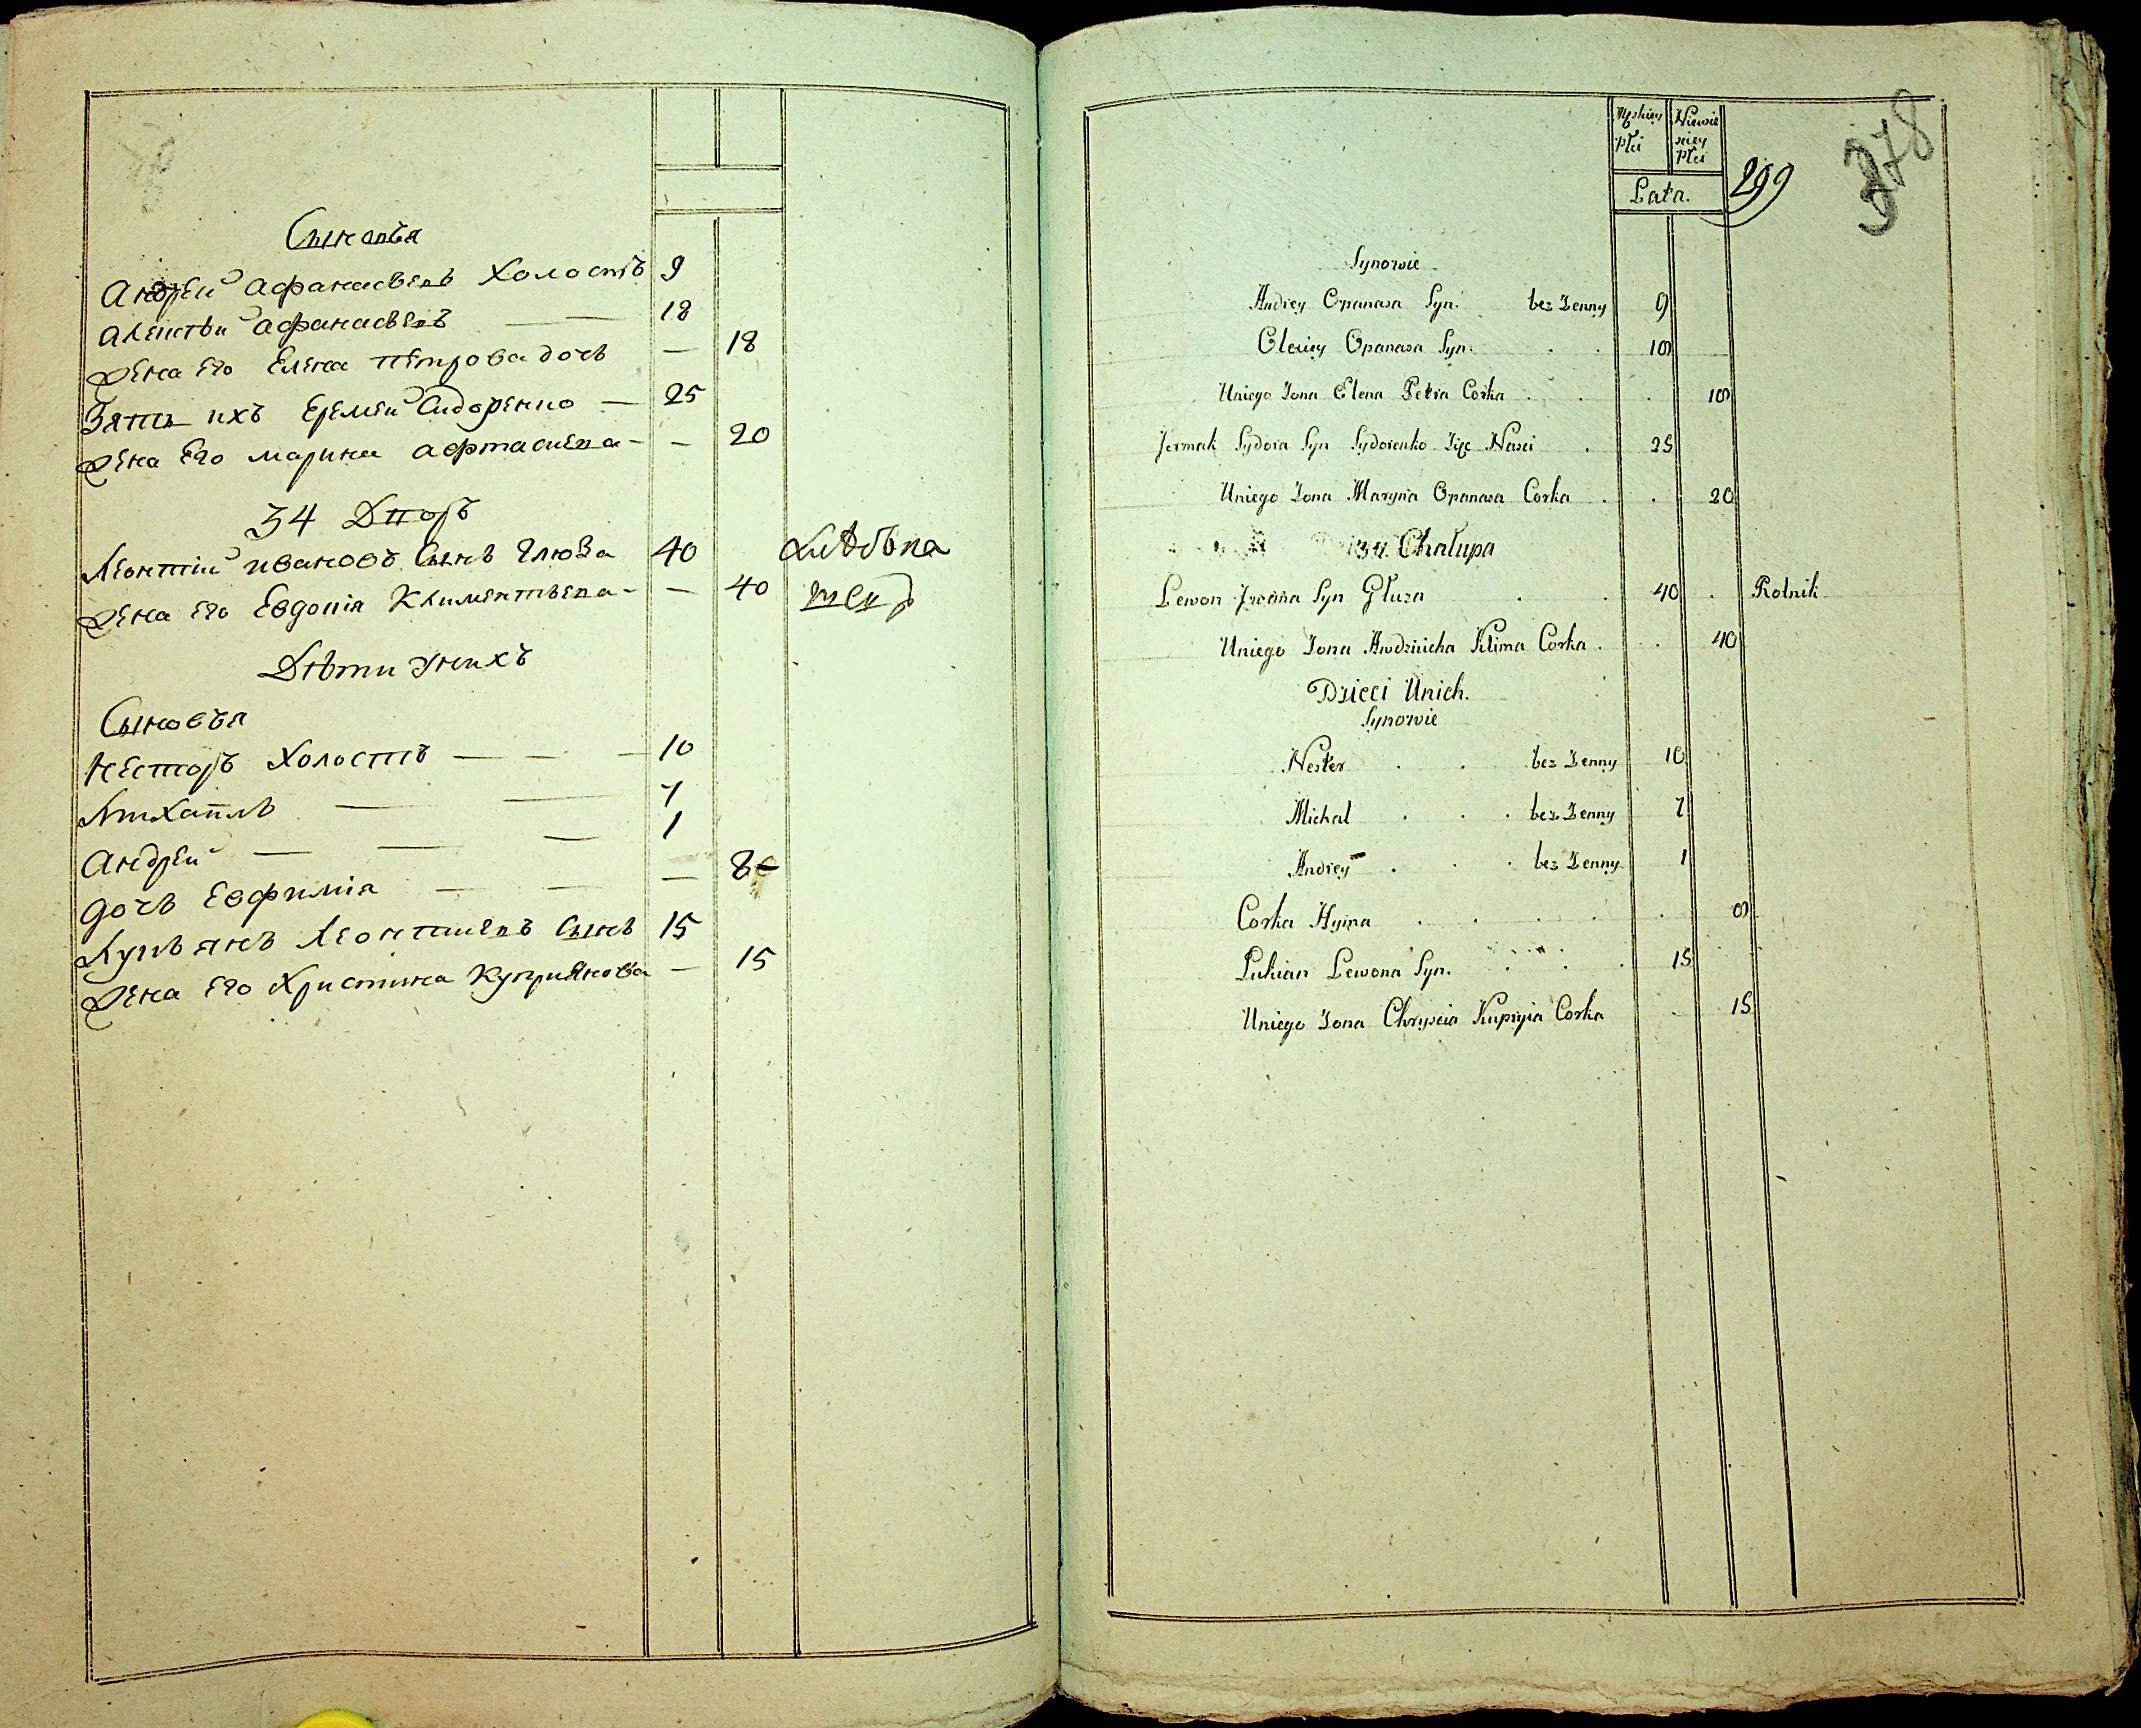 Сыновья
Андрей Афанасьевъ Холостъ 9
Алексѣй Афанасьевъ — — 18
Жена его Елена Петрова дочь — 18
Зять ихъ Еремей Сидоренко — 25
Жена Его Марина Афанасиева - — 20
34 Дворъ
Леонтій Ивановъ Сынъ Глюза 40
Жена его Евдокія Климентьева - — 40
Дѣти у нихъ
Сыновья
Несторъ Холостъ — — — 10
Михаилъ — — 7
Андрей — — — 1
дочь Евфимія — — — 8
Лукьянъ Леонтиевъ Сынъ 15
Жена его Христина Куприянова — 15
Męskiey Płci
Niewieściey Płci
Lata.
299
378
Synowie
Andrey Opanasa Syn. bez Zenny 9
Olexiey Opanasa Syn. 18
Uniego Zona Elena Petra Corka 18
Jermak Sydora Syn Sydorenko Zięc Nasci 25
Uniego Zona Maryna Opanasa Corka 20
34. Chałupa
Lewon Jwana Syn Głuza 40 Rolnik
Uniego Zona Awdziucha Klima Corka 40
Dzieci Unich.
Synowie
Nester bez Zenny 10
Michal bez Zenny 7
Andrey bez Zenny 1
Corka Hyma 8
Lukian Lewona Syn. 15
Uniego Zona Chryscia Kupryia Corka 15